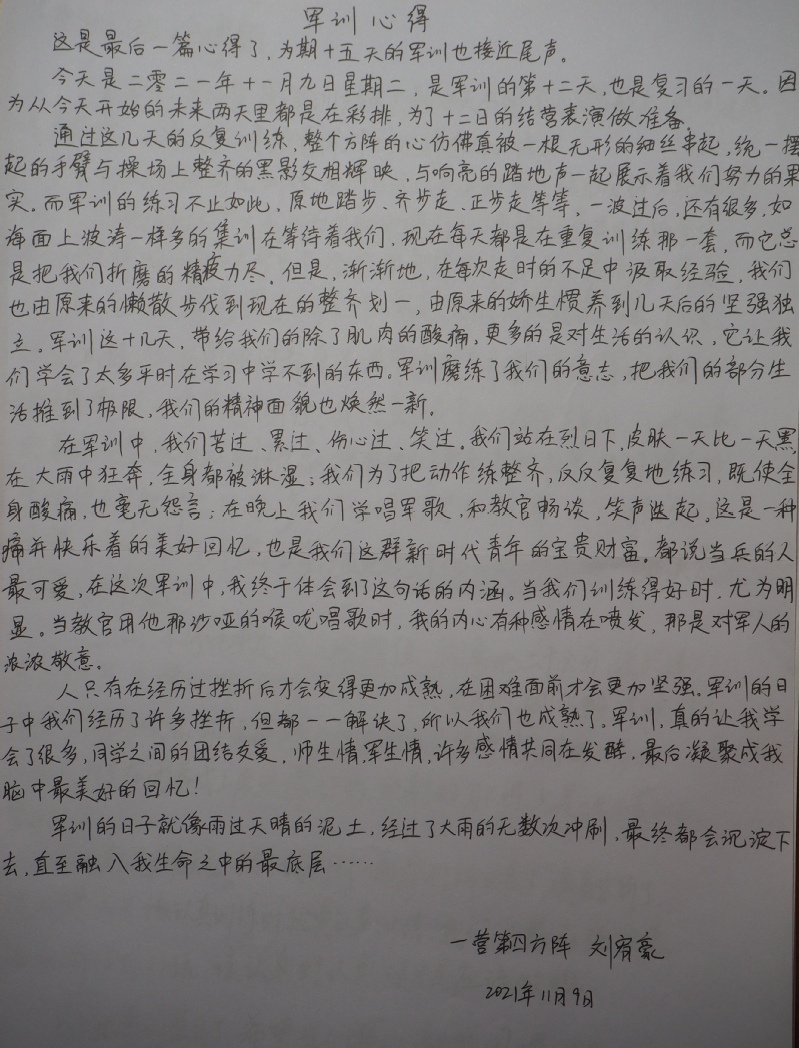 军训心得
这是最后一篇心得了,为期十五天的军训也接近尾声。
今天是二零二一年十一月九日星期二,是军训的第十二天,也是复习的一天。因
为从今天开始的未来两天里都是在彩排,为了十二日的结营表演做准备。
通过这几天的反复训练,整个方阵的心仿佛真被一根无形的细丝串起,统一摆
起的手臂与操场上整齐的黑影交相辉映,与响亮的踏地声一起展示着我们努力的果
实。而军训的练习不止如此,原地踏步、齐步走、正步走等等,一波过后,还有很多,如
海面上波涛一样多的集训在等待着我们,现在每天都是在重复训练那一套,而它总
是把我们折磨的精疲力尽。但是,渐渐地,在每次走时的不足中汲取经验,我们
也由原来的懒散步伐到现在的整齐划一,由原来的娇生惯养到几天后的坚强独
立。军训这十几天,带给我们的除了肌肉的酸痛,更多的是对生活的认识,它让我
们学会了太多平时在学习中学不到的东西。军训磨练了我们的意志,把我们的部分生
活推到了极限,我们的精神面貌也焕然一新。
在军训中,我们苦过、累过、伤心过、笑过。我们站在烈日下,皮肤一天比一天黑,
在大雨中狂奔,全身都被淋湿;我们为了把动作练整齐,反反复复地练习,既使全
身酸痛,也毫无怨言;在晚上我们学唱军歌,和教官畅谈,笑声迭起。这是一种
痛并快乐着的美好回忆,也是我们这群新时代青年的宝贵财富。都说当兵的人
最可爱,在这次军训中,我终于体会到了这句话的内涵。当我们训练得好时,尤为明
显。当教官用他那沙哑的喉咙唱歌时,我的内心有种感情在喷发,那是对军人的
浓浓敬意。
人只有在经历过挫折后才会变得更加成熟,在困难面前才会更加坚强。军训的日
子中我们经历了许多挫折,但都一一解决了,所以我们也成熟了。军训,真的让我学
会了很多,同学之间的团结友爱,师生情,军生情,许多感情共同在发酵,最后凝聚成我
脑中最美好的回忆!
军训的日子就像雨过天晴的泥土,经过了大雨的无数次冲刷,最终都会沉淀下
去,直至融入我生命之中的最底层……
一营第四方阵 刘宥豪
2021年11月9日